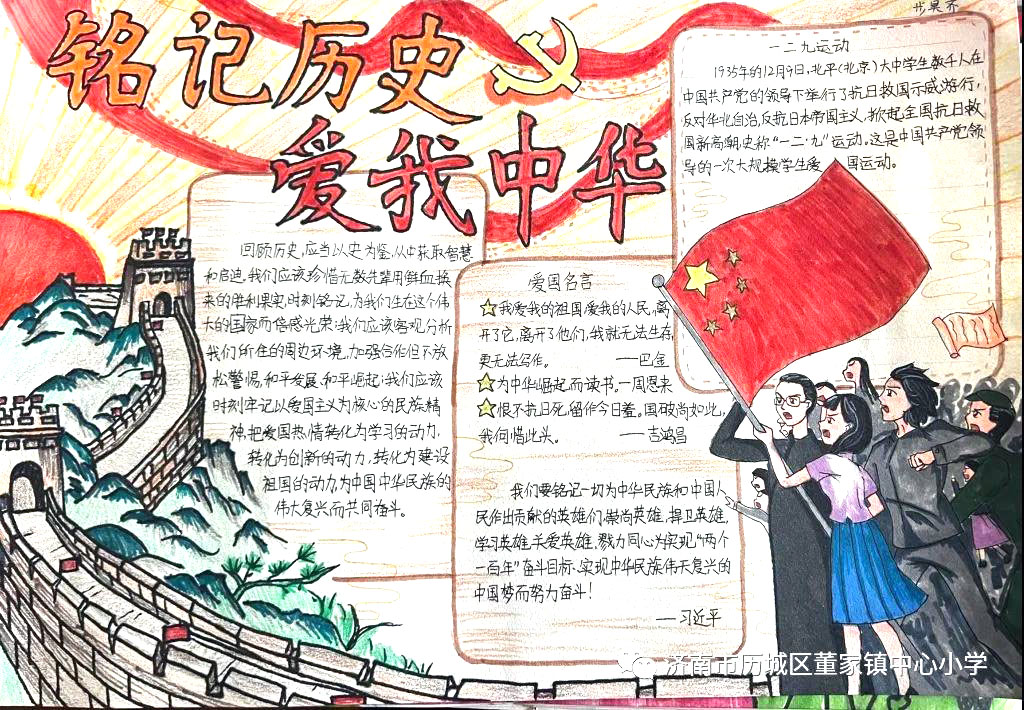 铭记历史
爱我中华
一二九运动
1935年的12月9日,北平(北京)大中学生数千人在
中国共产党的领导下举行了抗日救国示威游行,
反对华北自治,反抗日本帝国主义,掀起全国抗日救
国新高潮,史称“一二·九”运动。这是中国共产党领
导的一次大规模学生爱国运动。
回顾历史,应当以史为鉴,从中获取智慧
和启迪.我们应该珍惜无数先辈用鲜血换
来的胜利果实,时刻铭记,为我们生在这个伟
大的国家而倍感光荣;我们应该客观分析
我们所在的周边环境,加强合作但不放
松警惕,和平发展,和平崛起;我们应该
时刻牢记以爱国主义为核心的民族精
神,把爱国热情转化为学习的动力,
转化为创新的动力,转化为建设
祖国的动力,为中国中华民族的
伟大复兴而共同奋斗。
爱国名言
我爱我的祖国,爱我的人民,离
开了它,离开了他们,我就无法生存,
更无法写作。——巴金
为中华崛起而读书.—周恩来
恨不抗日死,留作今日羞。国破尚如此,
我何惜此头。——吉鸿昌
我们要铭记一切为中华民族和中国人
民作出贡献的英雄们,崇尚英雄,捍卫英雄,
学习英雄,关爱英雄,戮力同心为实现“两个
一百年”奋斗目标、实现中华民族伟大复兴的
中国梦而努力奋斗!
—习近平
济南市历城区董家镇中心小学